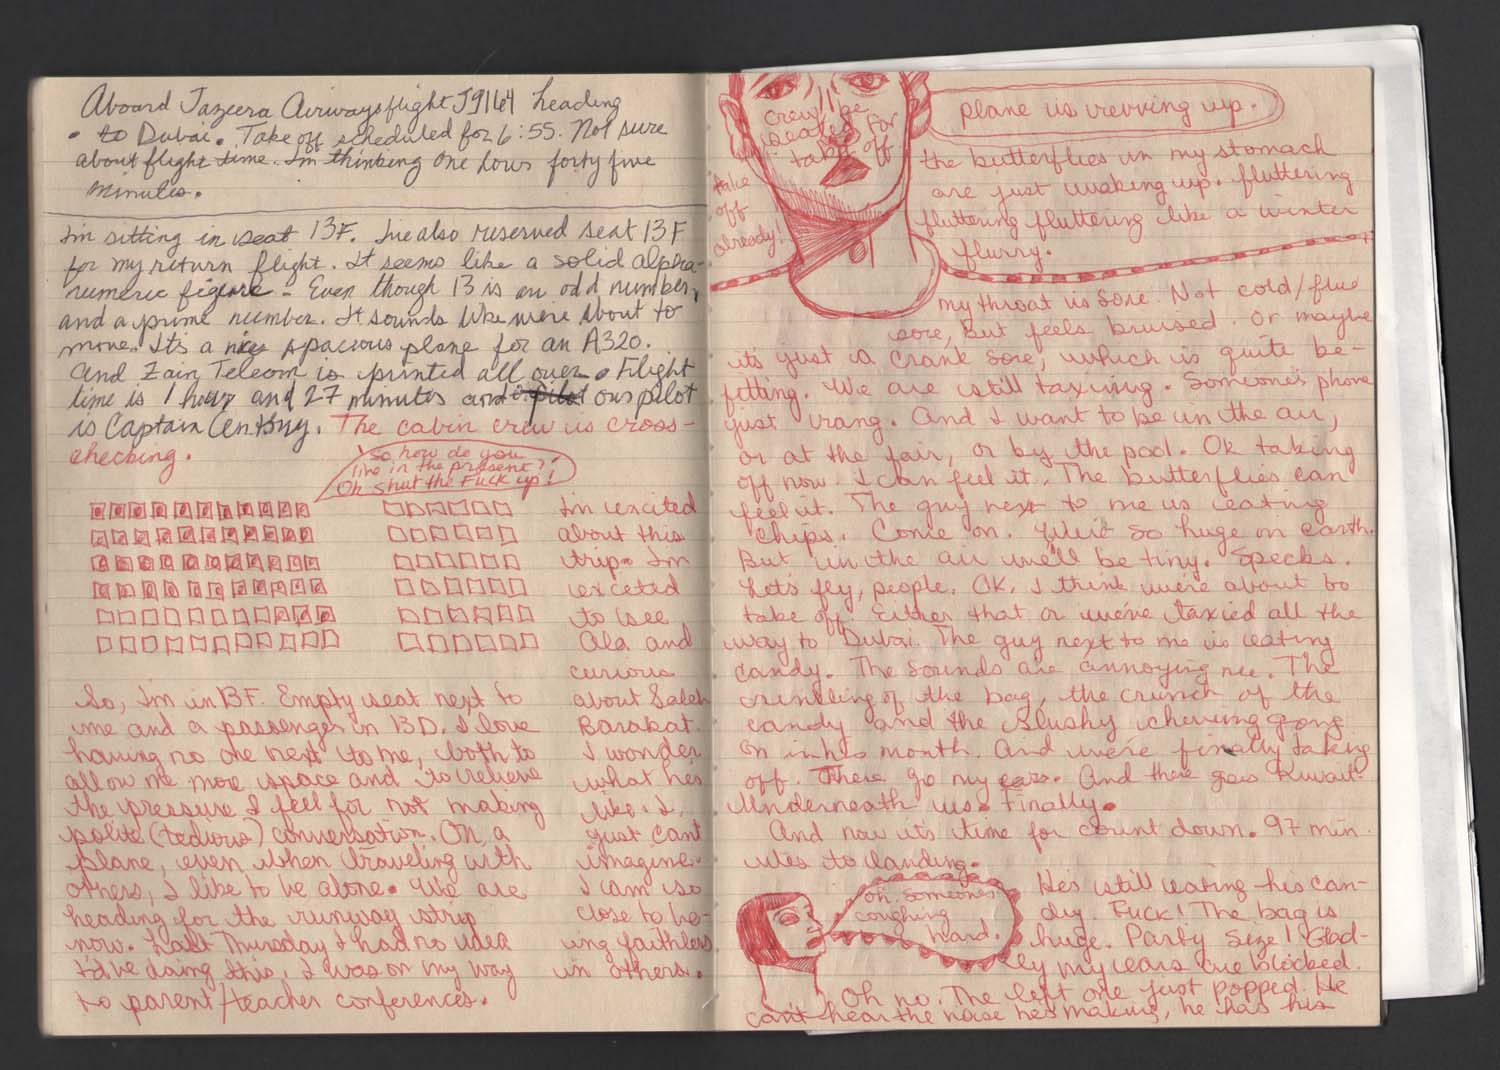 Aboard Jazeera Airways flight J9164 heading
to Dubai. Take off scheduled for 6:55. Not sure
about flight time. Im thinking one hour forty five
minutes.
Im sitting in seat 13F. Ive also reserved seat 13F
for my return flight. It seems like a solid alpha-
numeric figure - Even though 13 is an odd number,
and a prime number. It sounds like were about to
move. Its a nice spacious plane for an A320.
and Zain Telecom is printed all over. Flight
time is 1 hour and 27 minutes and our pilot
is Captain. The cabin crew is cross-
checking.
So how do you
live in the present?
Oh shut the Fuck up!
Im excited
about this
trip. Im
excited
to see
Ala and
curious
about Saleh
Barakat.
I wonder
what hes
like. I
just cant
imagine.
I am so
close to be-
ing faithless
in others.
So, Im in 13F. Empty seat next to
me and a passenger in 13D. I love
having no one next to me, both to
allow me more space and to relieve
the pressure I feel for not making
polite (tedious) conversation. On a
plane, even when traveling with
others, I like to be alone. We are
heading for the runway strip
now. Last Thursday I had no idea
I'd be doing this. I was on my way
to parent/teacher conferences.
crew be
seated for
take off
take
off
already!
plane is revving up.
the butterflies in my stomach
are just waking up. fluttering
fluttering fluttering like a winter
flurry.
my throat is sore. Not cold/flue
sore, but feels bruised. Or maybe
its just a crank sore, which is quite be-
fitting. We are still taxiing. Someone's phone
just rang. And I want to be in the air,
or at the fair, or by the pool. Ok taking
off now. I can feel it. The butterflies can
feel it. The guy next to me is eating
chips. Come on. You're so huge on earth.
But in the air we'll be tiny. Specks.
Let's fly, people. OK. I think we're about to
take off. Either that or we've taxied all the
way to Dubai. The guy next to me is eating
candy. The sounds are annoying me. The
crinkling of the bag, the crunch of the
candy and the slushy chewing going
on in his mouth. And we're finally taking
off. There go my ears. And there goes Kuwait.
Underneath us. Finally.
And now its time for count down. 97 min
utes to landing.
oh, someones
coughing
hard.
He's still eating his can-
dy. Fuck! The bag is
huge. Party Size! Glad-
ly my ears are blocked.
Oh no. The left one just popped. He
can't hear the noise hes making, he has his